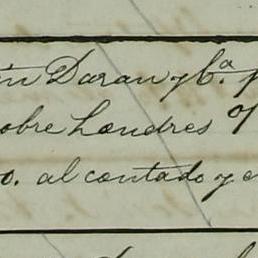 in Daran y Ca. p
sobre Londres of
o. al contado y e